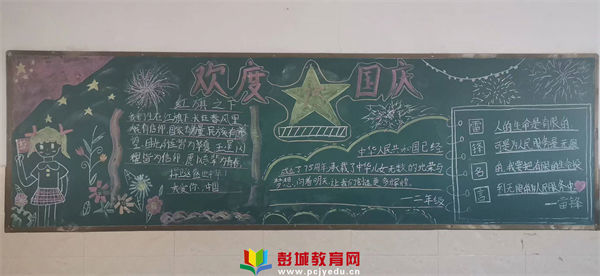 欢度国庆
红旗之下
我们生在红旗下 长在春风里
目光所至皆为华夏 五星闪
耀皆为信仰 愿以吾辈之青春
护
我爱你,中国
中华人民共和国已经
成立了75周年承载了中华儿女无数的光荣与
梦想,向着明天,让我们
一二年级
雷锋名言
人的生命是有限的
可是为人民服务是无限
的,我要把有限的生命投
到无限的为人民服务中
—雷锋
彭城教育网
www.pcjyedu.cn